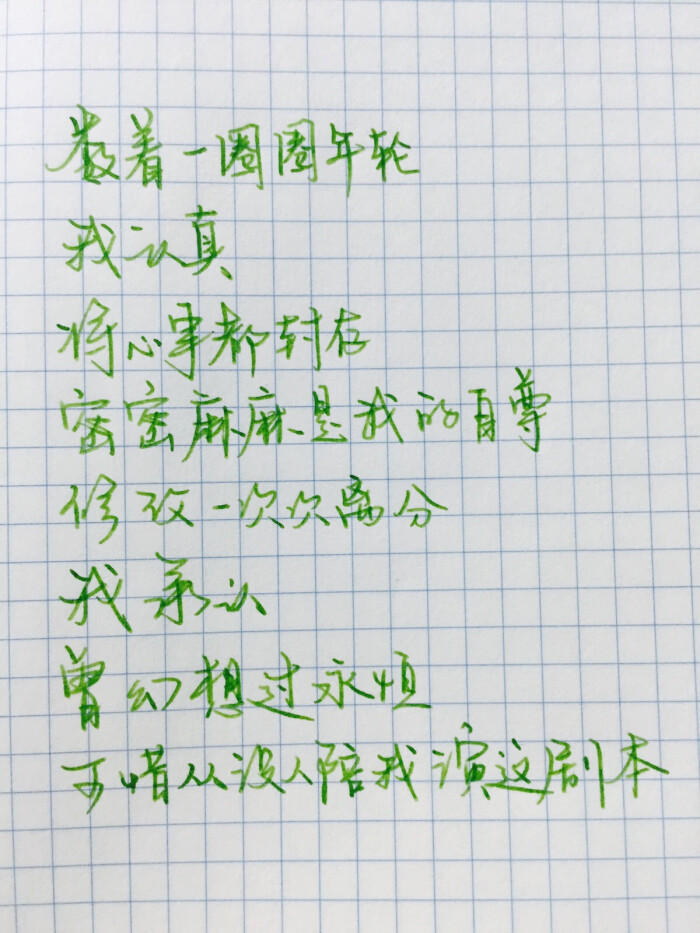 数着一圈圈年轮
我认真
将心事都封存
密密麻麻是我的自尊
修改一次次离分
我承认
曾幻想过永恒
可惜从没人陪我演这剧本